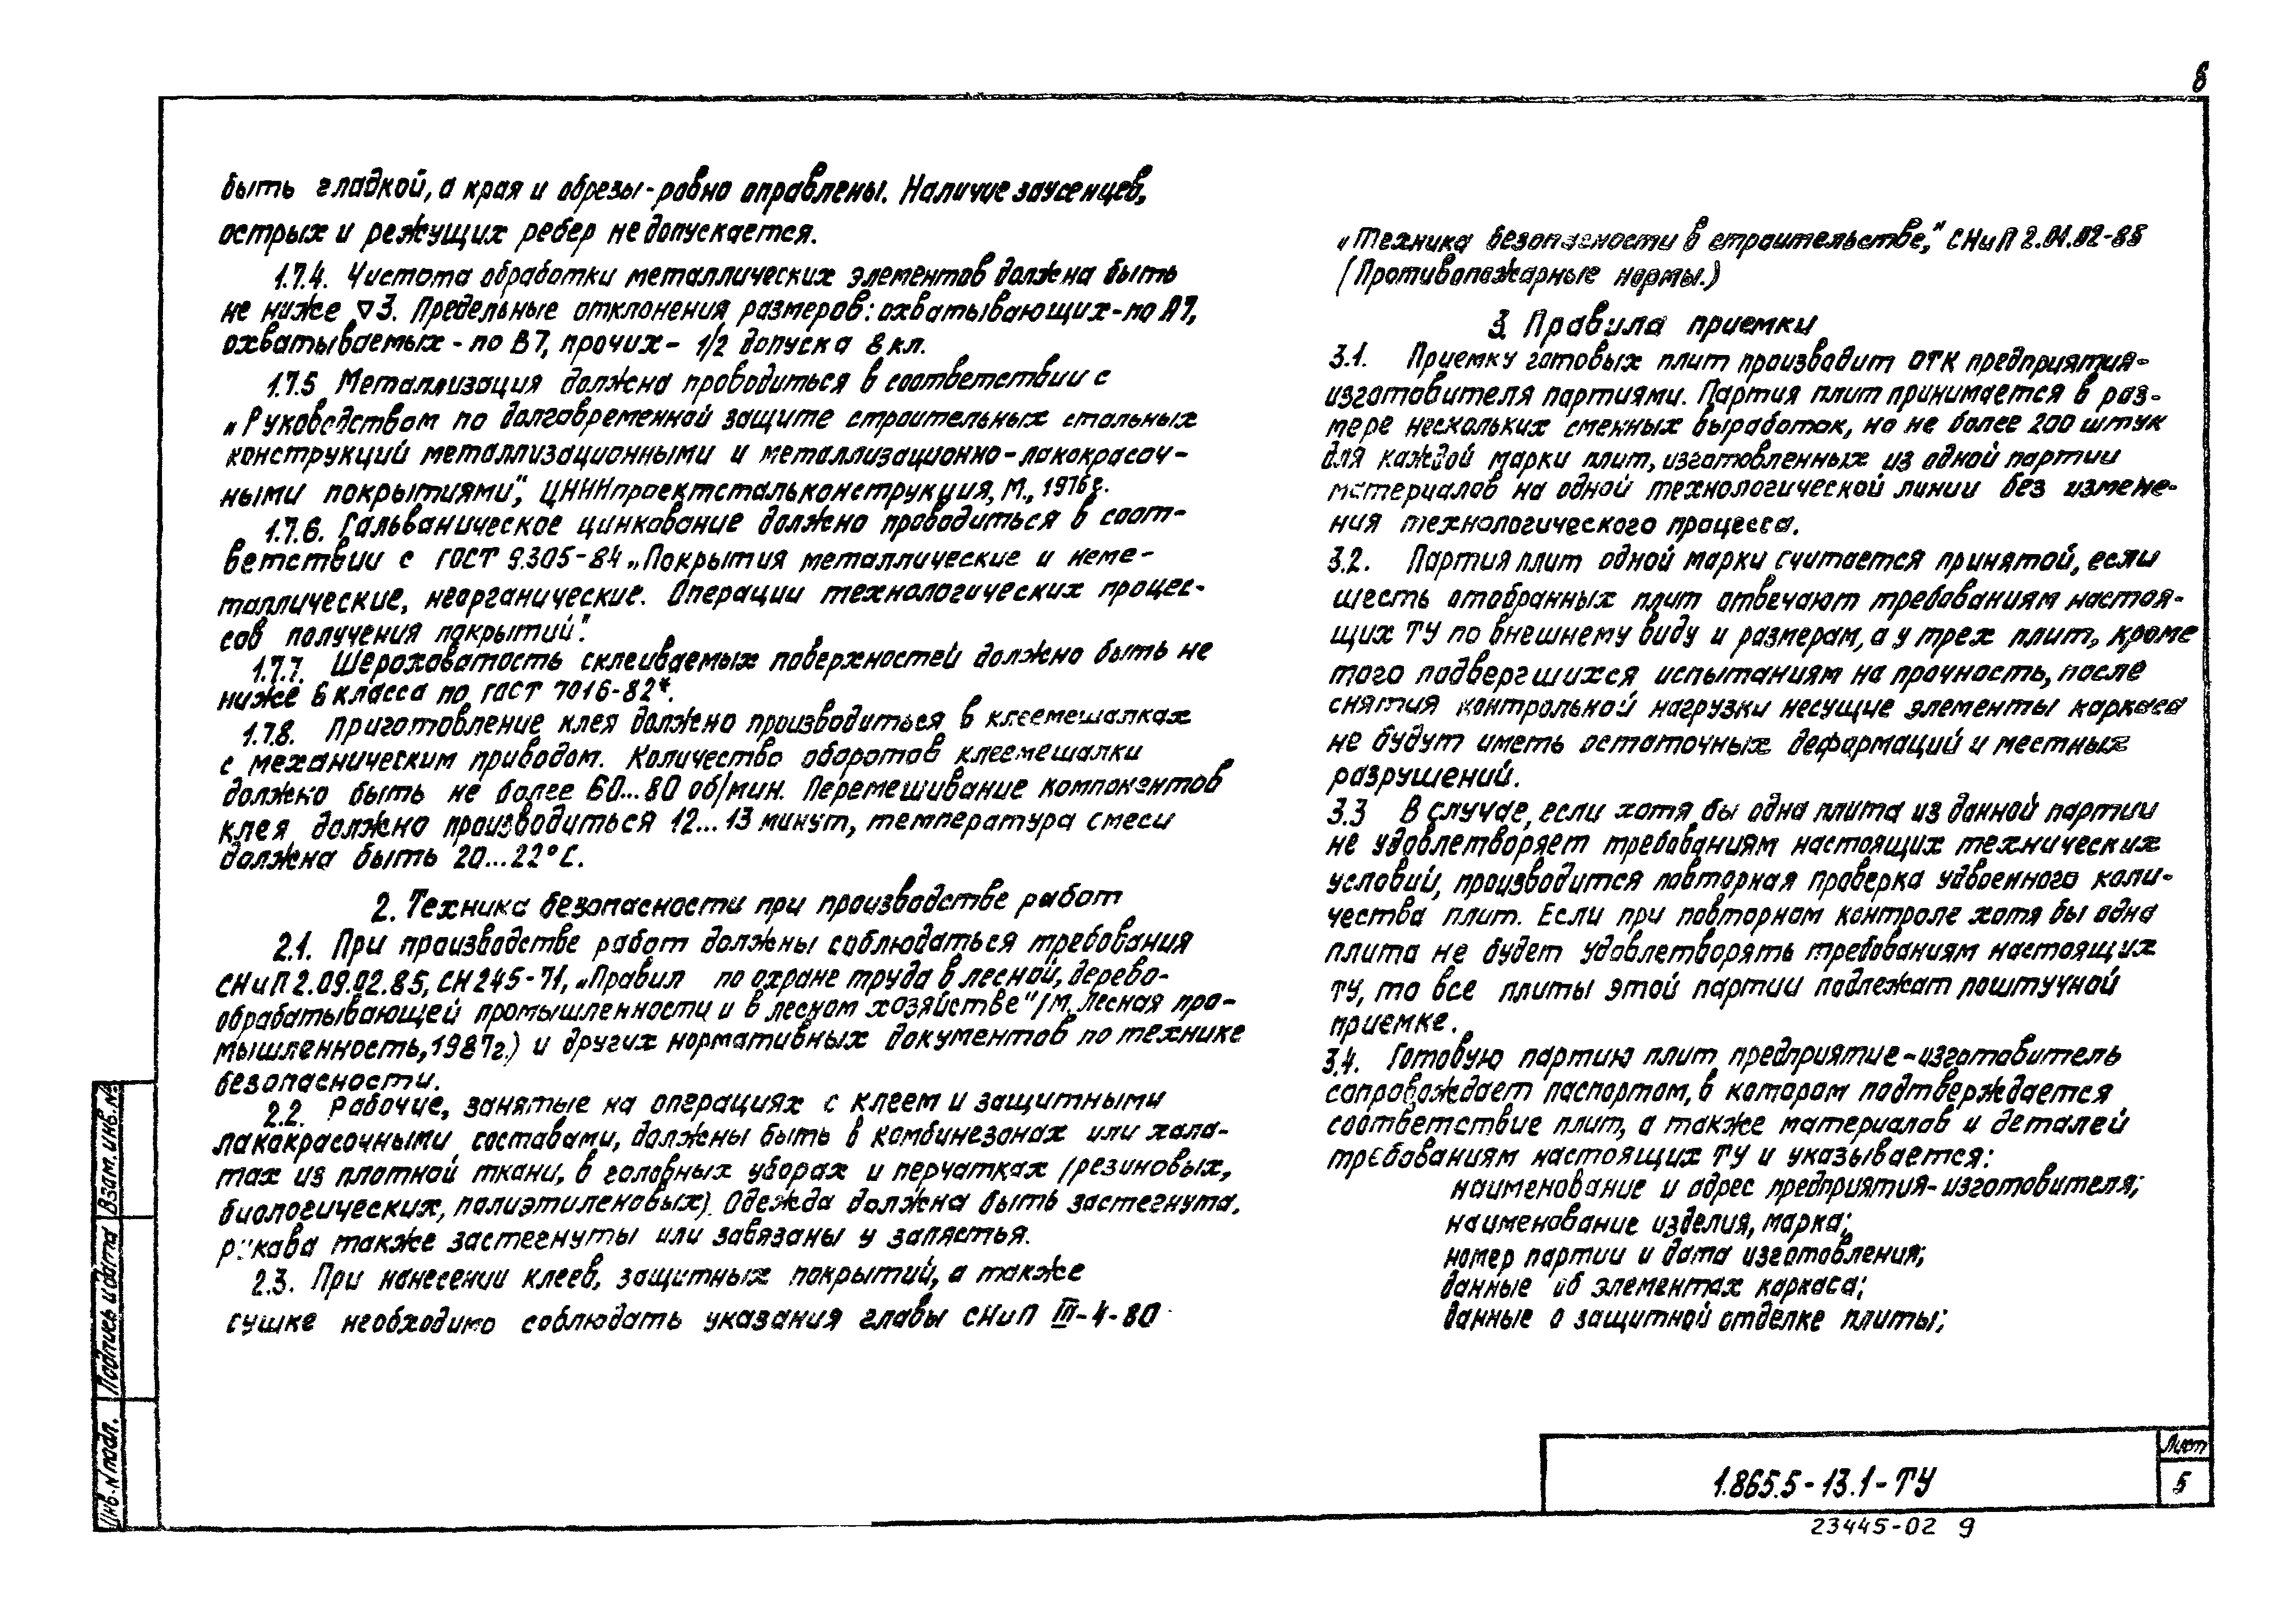 8
быть гладкой, а края и обрезы-ровно оправлены. Наличие заусенцев,
острых и режущих ребер не допускается.
1.7.4. Чистота обработки металлических элементов должна быть
не ниже ▽3. Предельные отклонения размеров: охватывающих-по А7,
охватываемых - по В7, прочих- 1/2 допуска 8 кл.
1.7.5 Металлизация должна проводиться в соответствии с
„Руководством по долговременной защите строительных стальных
конструкций металлизационными и металлизационно-лакокрасоч-
ными покрытиями", ЦНИИпроектстальконструкция, М., 1976г.
1.7.6. Гальваническое цинкование должно проводиться в соот-
ветствии с ГОСТ 9.305-84 „Покрытия металлические и неме-
таллические, неорганические. Операции технологических процес-
сов получения покрытий".
1.7.7. Шероховатость склеиваемых поверхностей должно быть не
ниже 6 класса по ГОСТ 7016-82*.
1.7.8. Приготовление клея должно производиться в клеемешалках
с механическим приводом. Количество оборотов клеемешалки
должно быть не более 60...80 об/мин. Перемешивание компонентов
клея должно производиться 12...13 минут, температура смеси
должна быть 20...22°С.
2. Техника безопасности при производстве работ
2.1. При производстве работ должны соблюдаться требования
СНиП 2.09.02.85, СН 245-71, „Правил по охране труда в лесной, дерево-
обрабатывающей промышленности и в лесном хозяйстве" /М. Лесная про-
мышленность, 1987г.) и других нормативных документов по технике
безопасности.
2.2. Рабочие, занятые на операциях с клеем и защитными
лакокрасочными составами, должны быть в комбинезонах или хала-
тах из плотной ткани, в головных уборах и перчатках /резиновых,
биологических, полиэтиленовых). Одежда должна быть застегнута,
рукава также застегнуты или завязаны у запястья.
2.3. При нанесении клеев, защитных покрытий, а также
сушке необходимо соблюдать указания главы СНиП III-4-80
„Техника безопасности в строительстве," СНиП 2.01.02-85
(Противопожарные нормы.)
3. Правила приемки
3.1. Приемку готовых плит производит ОТК предприятия-
изготовителя партиями. Партия плит принимается в раз-
мере нескольких сменных выработок, но не более 200 штук
для каждой марки плит, изготовленных из одной партии
материалов на одной технологической линии без измене-
ния технологического процесса.
3.2. Партия плит одной марки считается принятой, если
шесть отобранных плит отвечают требованиям настоя-
щих ТУ по внешнему виду и размерам, а у трех плит, кроме
того подвергшихся испытаниям на прочность, после
снятия контрольной нагрузки несущие элементы каркаса
не будут иметь остаточных деформаций и местных
разрушений.
3.3 В случае, если хотя бы одна плита из данной партии
не удовлетворяет требованиям настоящих технических
условий, производится повторная проверка удвоенного коли-
чества плит. Если при повторном контроле хотя бы одна
плита не будет удовлетворять требованиям настоящих
ТУ, то все плиты этой партии подлежат поштучной
приемке.
3.4. Готовую партию плит предприятие-изготовитель
сопровождает паспортом, в котором подтверждается
соответствие плит, а также материалов и деталей
требованиям настоящих ТУ и указывается:
наименование и адрес предприятия-изготовителя;
наименование изделия, марка;
номер партии и дата изготовления;
данные об элементах каркаса;
данные о защитной отделке плиты;
Взам. инв. №
Подпись и дата
Инв. N подл.
1.865.5-13.1-ТУ
Лист
5
23445-02 9